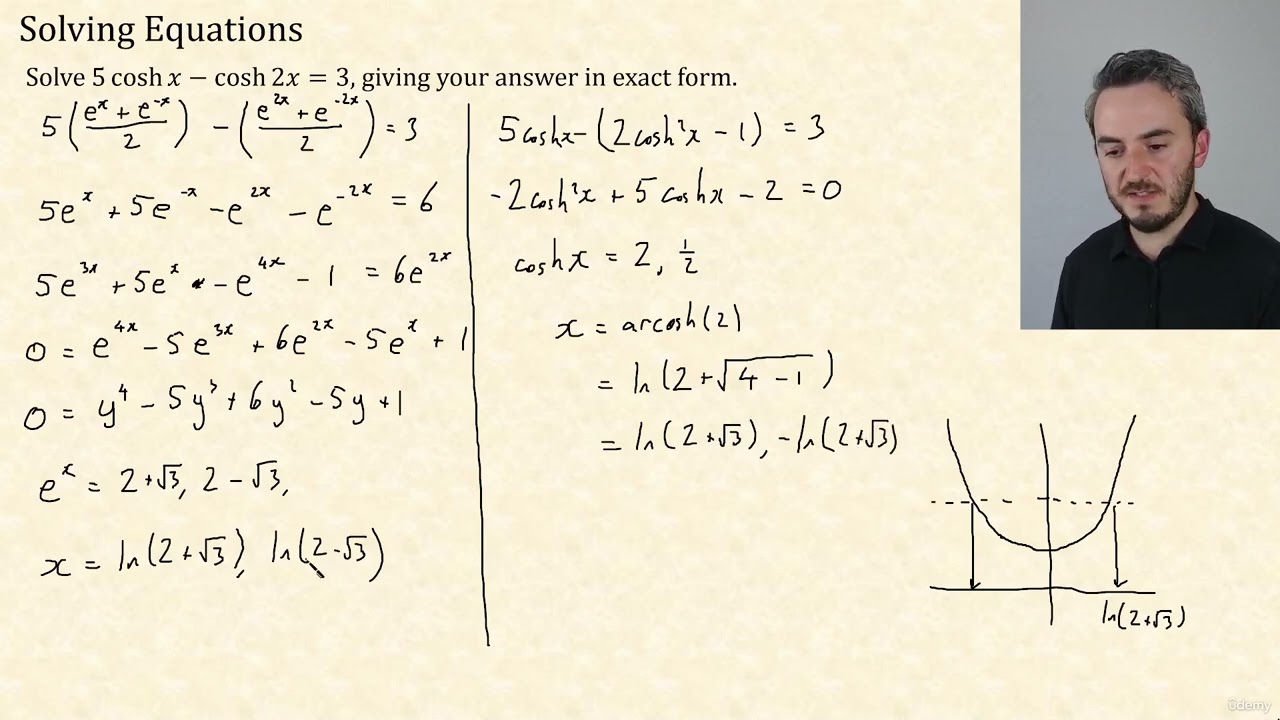 Solving Equations
Solve 5 cosh x − cosh 2x = 3, giving your answer in exact form.
5((eˣ + e⁻ˣ)/2) − ((e²ˣ + e⁻²ˣ)/2) = 3
5eˣ + 5e⁻ˣ − e²ˣ − e⁻²ˣ = 6
5e³ˣ + 5eˣ − e⁴ˣ − 1 = 6e²ˣ
0 = e⁴ˣ − 5e³ˣ + 6e²ˣ − 5eˣ + 1
0 = y⁴ − 5y³ + 6y² − 5y + 1
eˣ = 2+√3, 2−√3,
x = ln(2+√3), ln(2−√3)
5coshx − (2cosh²x − 1) = 3
-2cosh²x + 5coshx − 2 = 0
coshx = 2, 1/2
x = arcosh(2)
= ln(2+√(4−1))
= ln(2+√3), −ln(2+√3)
ln(2+√3)
ûdemy